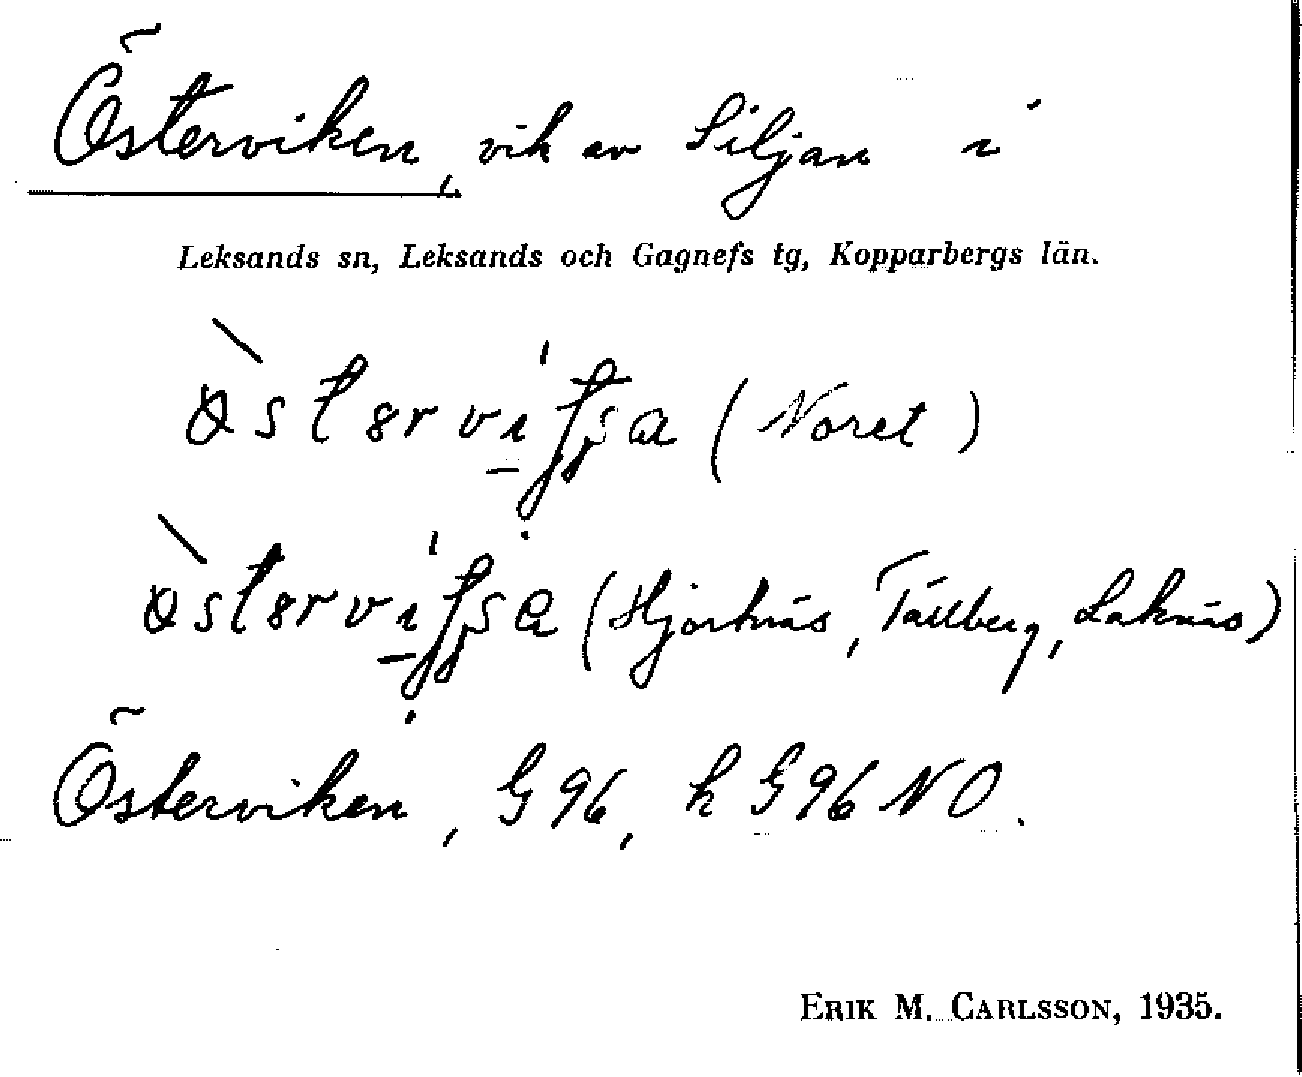 Österviken, vik av Siljan i
Leksands sn, Leksands och Gagnefs tg, Kopparbergs län.
(Noret)
(Hjortnäs, Tällberg, Laknäs)
Österviken, G 96, h G 96 NO.
ERIK M. CARLSSON, 1935.